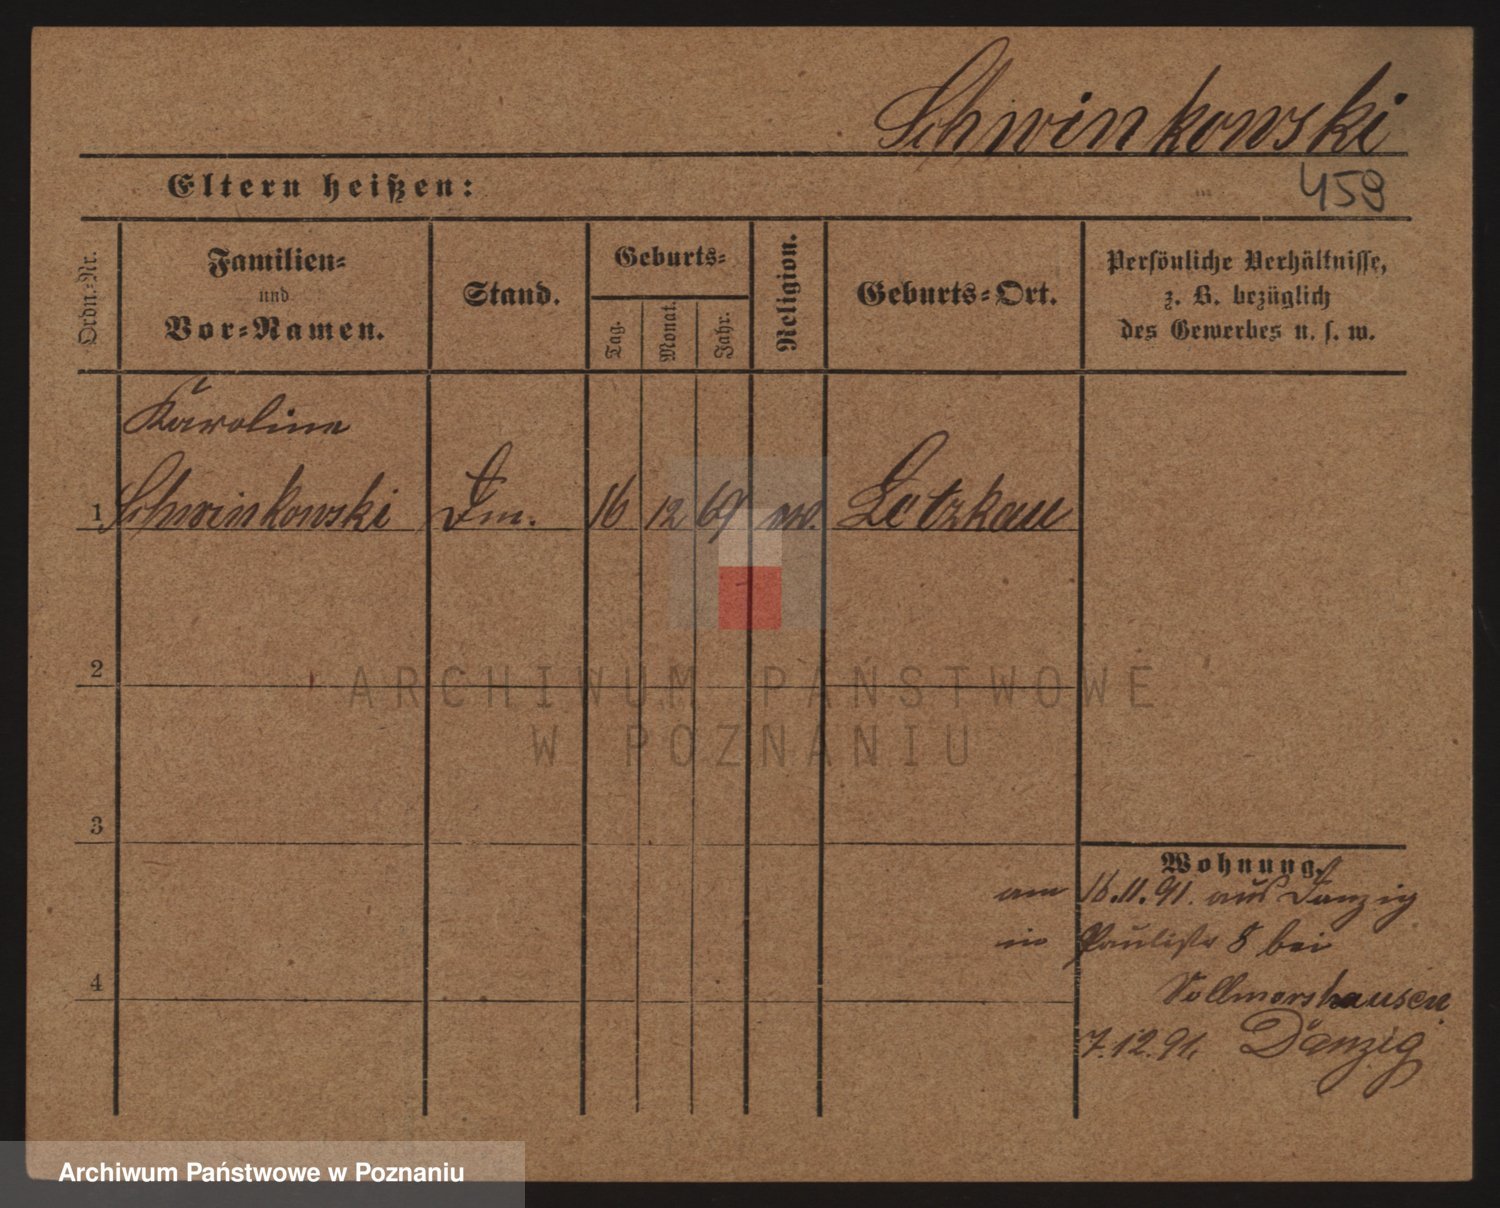 Schwinkowski
Eltern heißen:
459
Ordn.-Nr.
Familien-
und
Vor-Namen.
Stand.
Geburts-
Tag.
Monat.
Jahr.
Religion.
Geburts-Ort.
Persönliche Verhältnisse,
z. B. bezüglich
des Gewerbes u. s. w.
Karoline
1 Schwinkowski Dm. 16 12 69 Letzkau
2
ARCHIWUM PAŃSTWOWE
W POZNANIU
3
Wohnung.
am 16.11.91. aus Danzig
in Paulistr 8 bei
Vollmershausen
4
7.12.91. Danzig
Archiwum Państwowe w Poznaniu